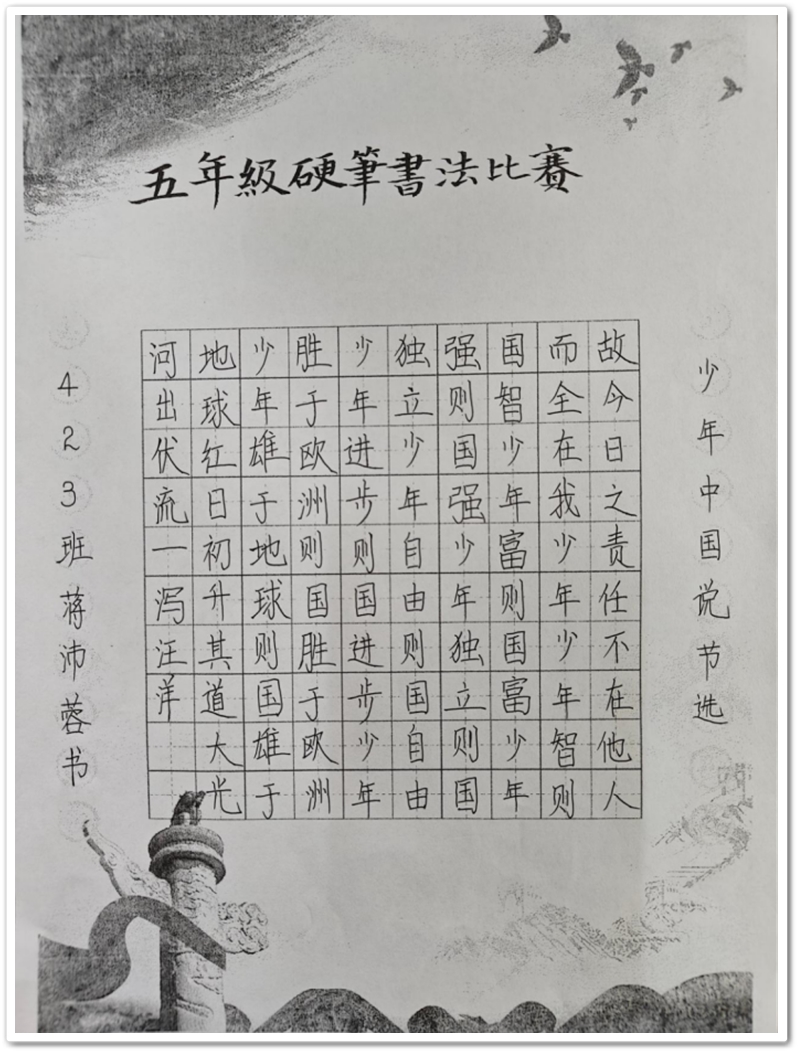 五年級硬筆書法比賽
少年中国说节选
故今日之责任不在他人
而全在我少年少年智则
国智少年富则国富少年
强则国强少年独立则国
独立少年自由则国自由
少年进步则国进步少年
胜于欧洲则国胜于欧洲
少年雄于地球则国雄于
地球红日初升其道大光
河出伏流一泻汪洋
423班蒋沛蓉书